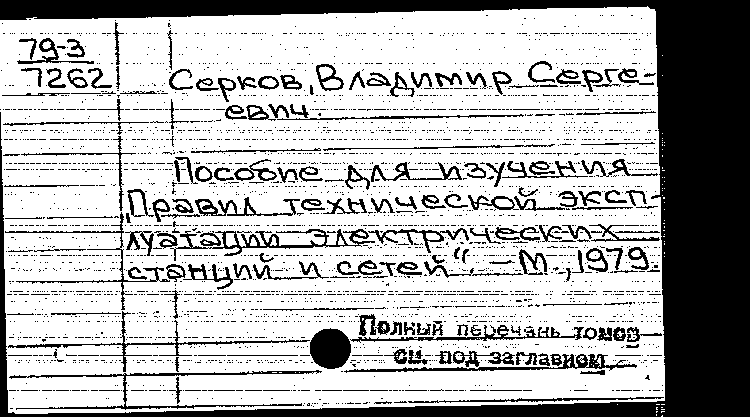 79-3
7262
Серков, Владимир Серге-
евич.
Пособие для изучения
„Правил технической эксп-
луатации электрических
станций и сетей“. – М., 1979.
Полный перечань томов
см. под заглавием